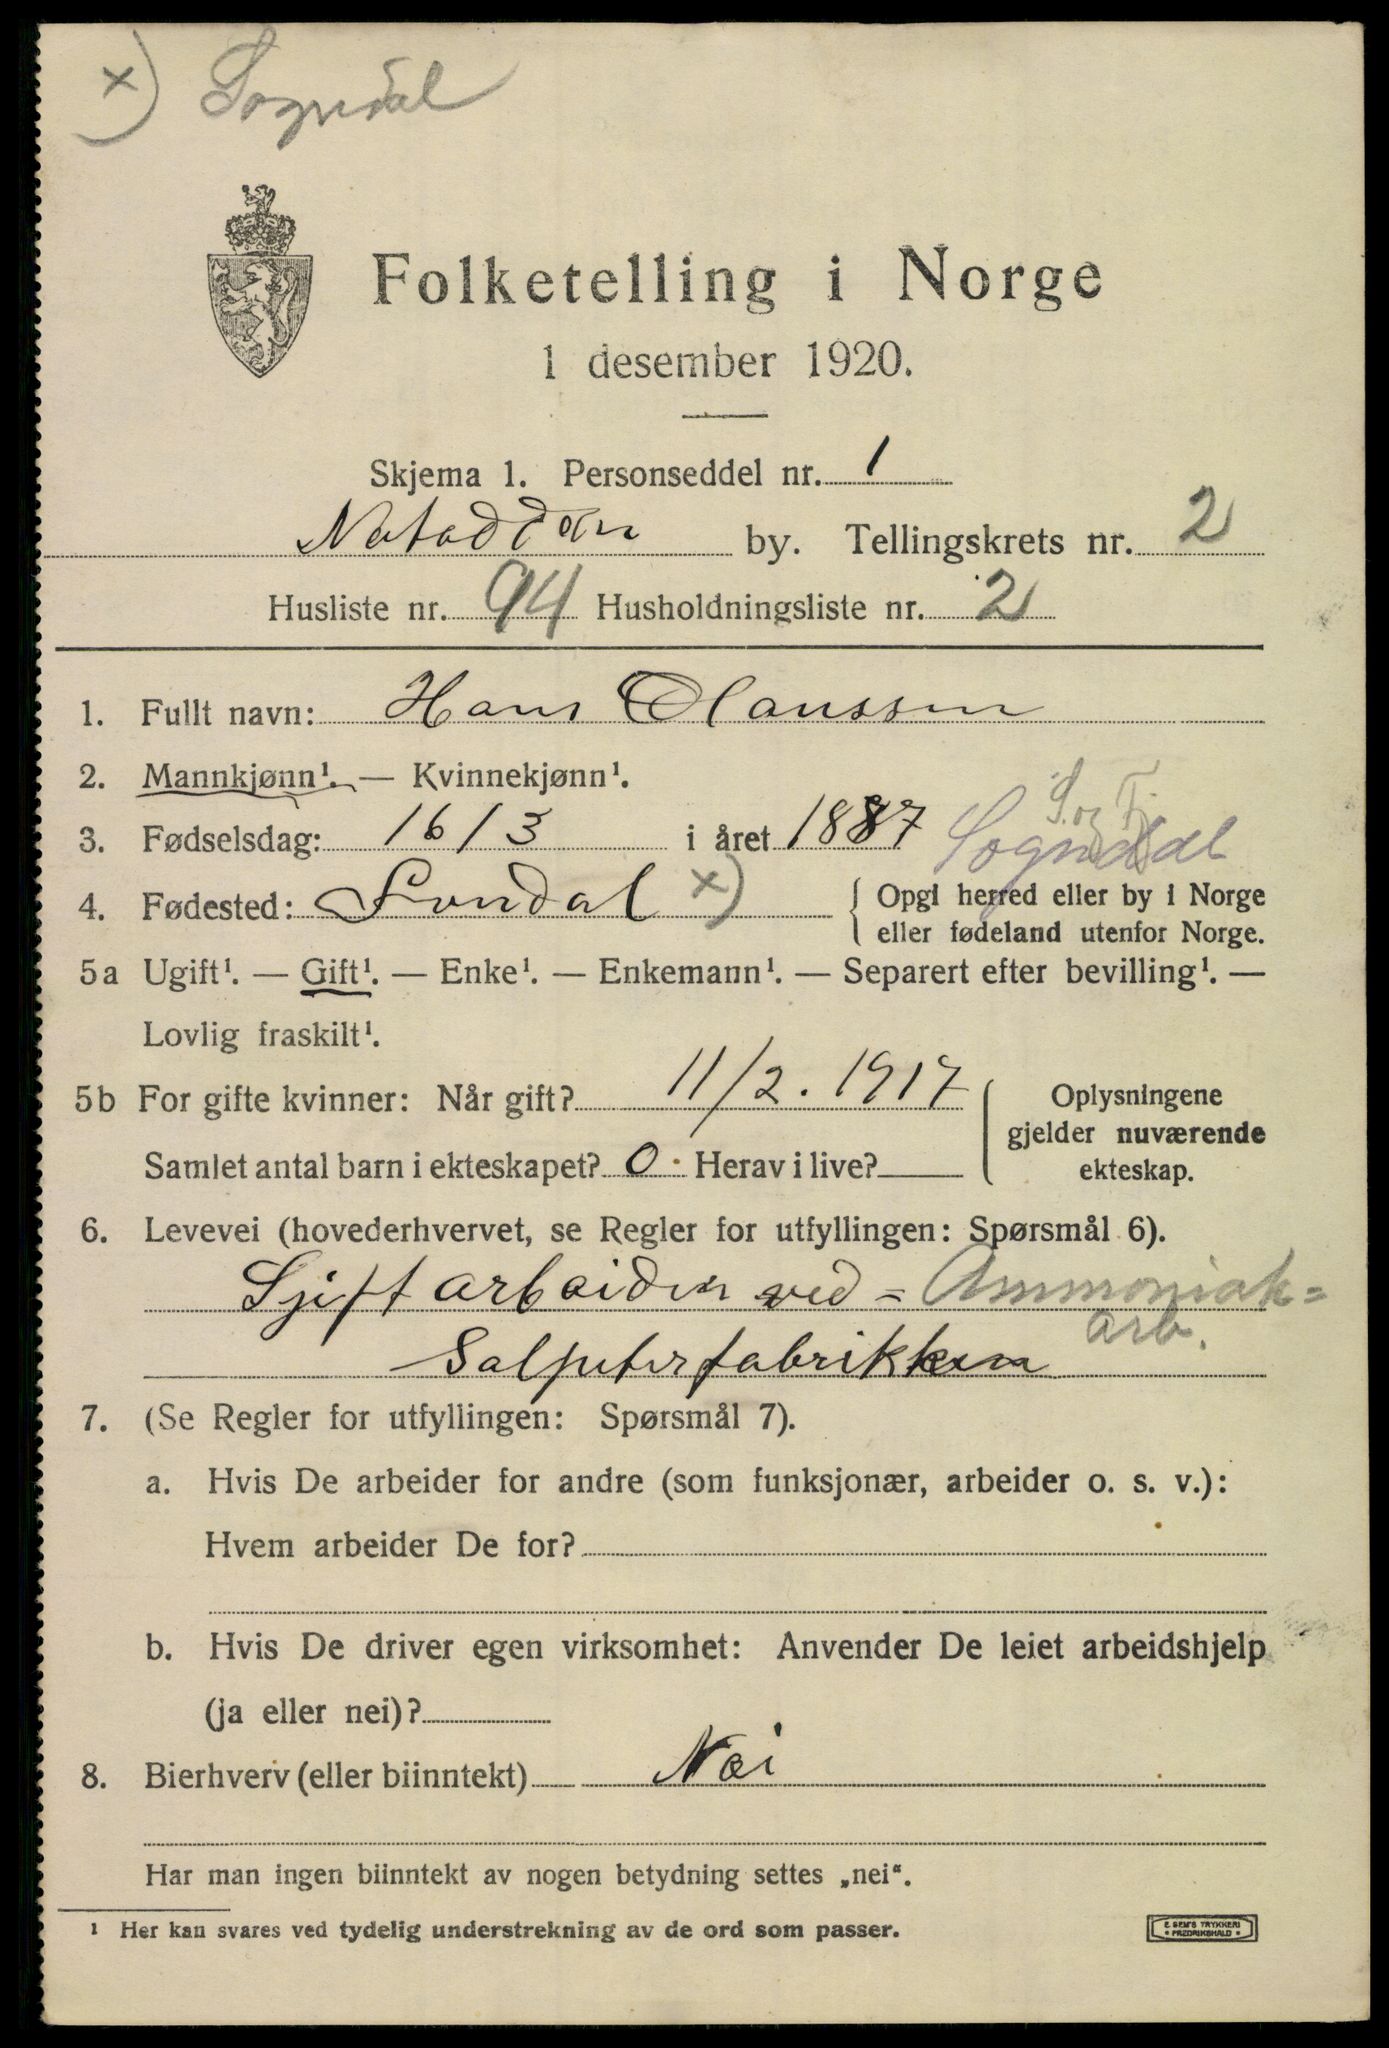 x) Sogndal
Folketelling i Norge
1 desember 1920.
Skjema 1. Personseddel nr. 1
Notodden by. Tellingskrets nr. 2
Husliste nr. 94 Husholdningsliste nr. 2
1. Fullt navn: Hans Olaussen
2. Mannkjønn¹. — Kvinnekjønn¹.
S. og Fj.
3. Fødselsdag: 16/3 i året 1887 Sogndal
4. Fødested: x) { Opgi herred eller by i Norge
eller fødeland utenfor Norge.
5a Ugift¹. — Gift¹. — Enke¹. — Enkemann¹. — Separert efter bevilling¹. —
Lovlig fraskilt¹.
5b For gifte kvinner: Når gift? 11/2. 1917 { Oplysningene
gjelder nuværende
Samlet antal barn i ekteskapet? 0. Herav i live? ekteskap.
6. Levevei (hovederhvervet, se Regler for utfyllingen: Spørsmål 6).
Sjift arbeider ved = Ammoniak=
arb.
Salpeterfabrikken
7. (Se Regler for utfyllingen: Spørsmål 7).
a. Hvis De arbeider for andre (som funksjonær, arbeider o. s. v.):
Hvem arbeider De for?
b. Hvis De driver egen virksomhet: Anvender De leiet arbeidshjelp
(ja eller nei)?
8. Bierhverv (eller biinntekt) Nei
Har man ingen biinntekt av nogen betydning settes „nei“.
¹ Her kan svares ved tydelig understrekning av de ord som passer.
E. SEM'S TRYKKERI
• FREDRIKSHALD •